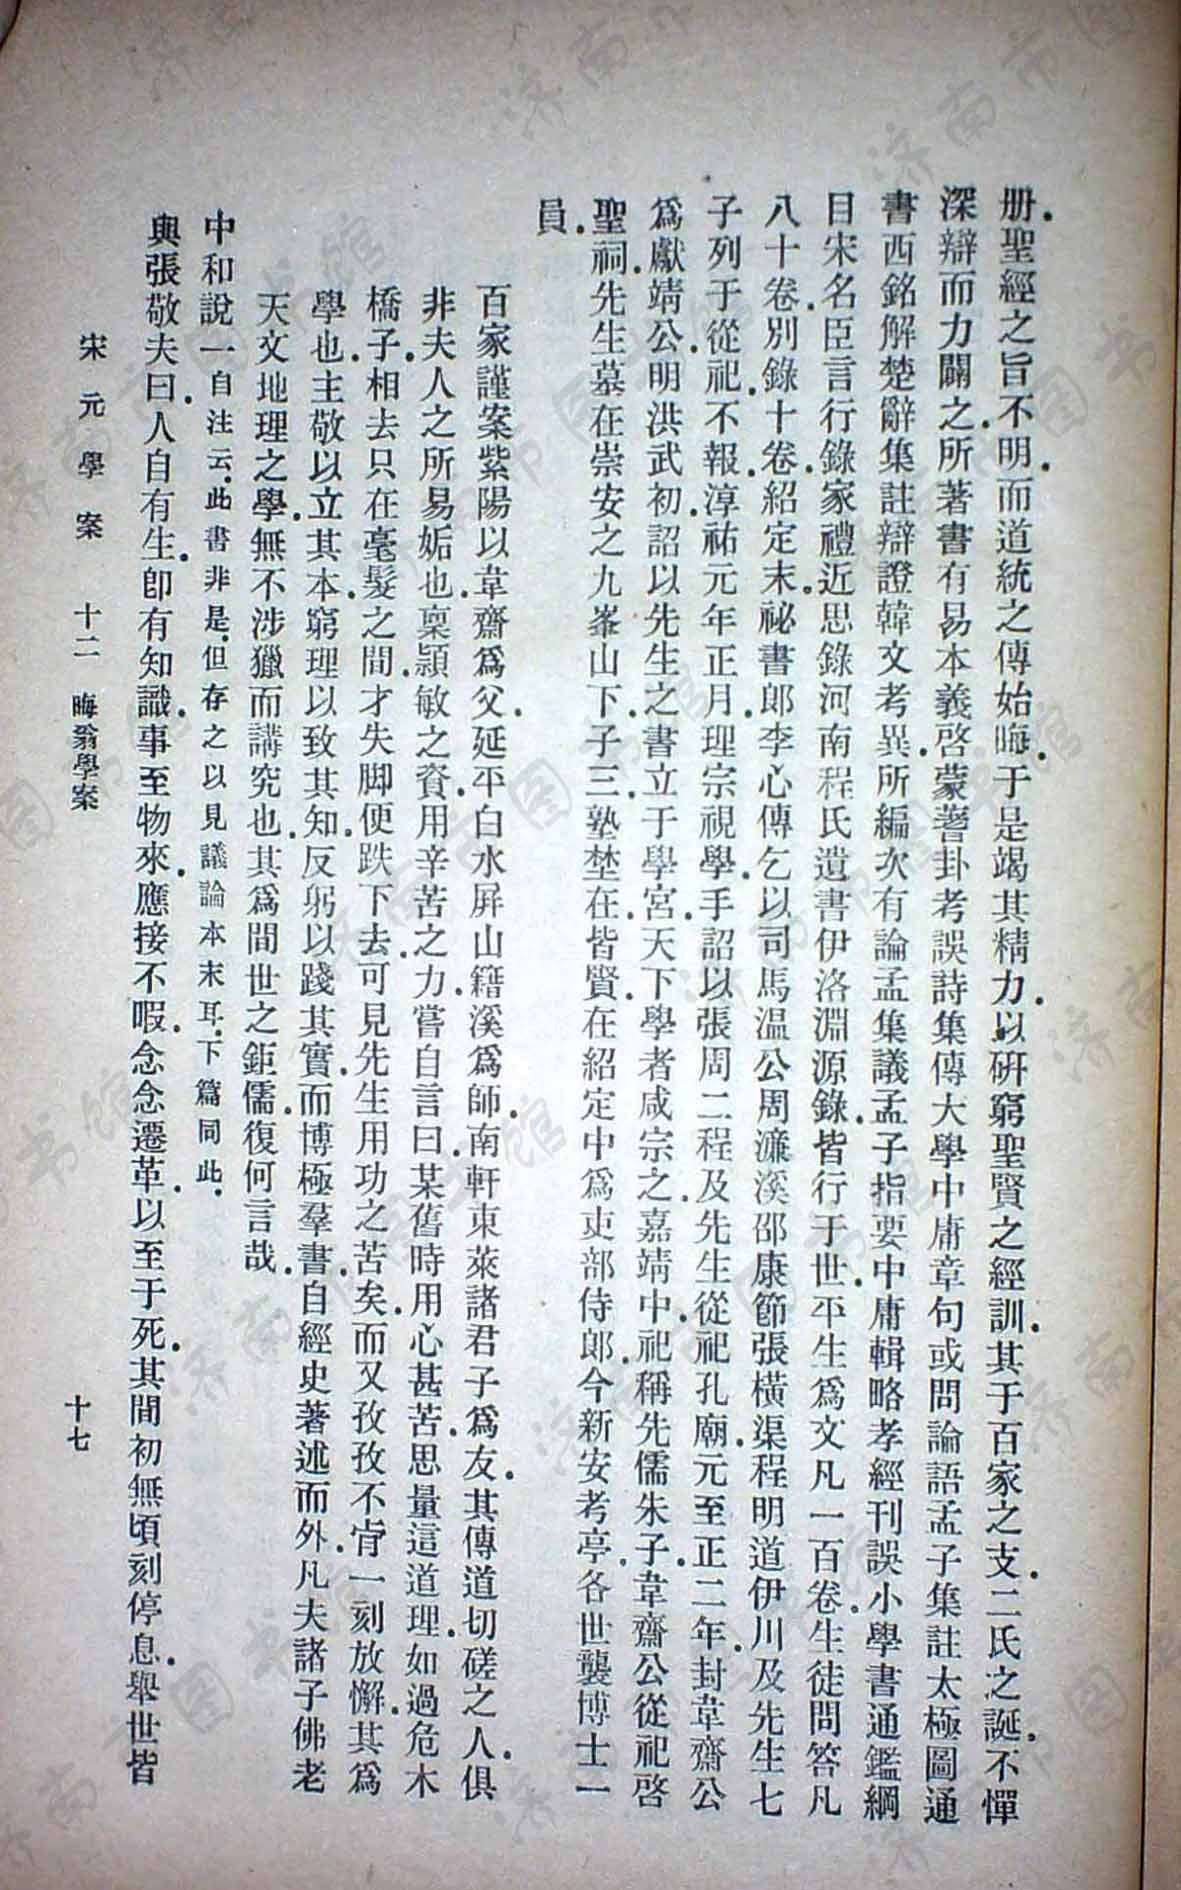 册.聖經之旨不明.而道統之傳始晦.于是竭其精力.以硏窮聖賢之經訓.其于百家之支.二氏之誕.不憚
深辯而力闢之.所著書有易本義啓蒙蓍卦考誤詩集傳大學中庸章句或問論語孟子集註太極圖通
書西銘解楚辭集註辯證韓文考異.所編次有論孟集議孟子指要中庸輯略孝經刊誤小學書通鑑綱
目宋名臣言行錄家禮近思錄河南程氏遺書伊洛淵源錄.皆行于世.平生爲文凡一百卷.生徒問答凡
八十卷.別錄十卷.紹定末.祕書郎李心傳乞以司馬温公周濂溪邵康節張橫渠程明道伊川及先生七
子列于從祀.不報.淳祐元年正月.理宗視學.手詔以張周二程及先生從祀孔廟.元至正二年.封韋齋公
爲獻靖公.明洪武初.詔以先生之書立于學宮.天下學者咸宗之.嘉靖中.祀稱先儒朱子.韋齋公從祀啓
聖祠.先生墓在崇安之九峯山下.子三.塾埜在.皆賢.在紹定中爲吏部侍郎.今新安考亭.各世襲博士一
員.
百家謹案紫陽以韋齋爲父.延平白水屏山籍溪爲師.南軒東萊諸君子爲友.其傳道切磋之人.俱
非夫人之所易姤也.稟穎敏之資.用辛苦之力.嘗自言曰.某舊時用心甚苦.思量這道理.如過危木
橋子.相去只在毫髮之間.才失脚便跌下去.可見先生用功之苦矣.而又孜孜不肯一刻放懈.其爲
學也.主敬以立其本.窮理以致其知.反躬以踐其實.而博極羣書.自經史著述而外.凡夫諸子佛老
天文地理之學.無不涉獵而講究也.其爲間世之鉅儒.復何言哉.
中和說一自注云.此書非是.但存之以見議論本末耳.下篇同此.
與張敬夫曰.人自有生.卽有知識.事至物來.應接不暇.念念遷革.以至于死.其間初無頃刻停息.舉世皆
宋元學案 十二 晦翁學案 十七
济南市图书馆